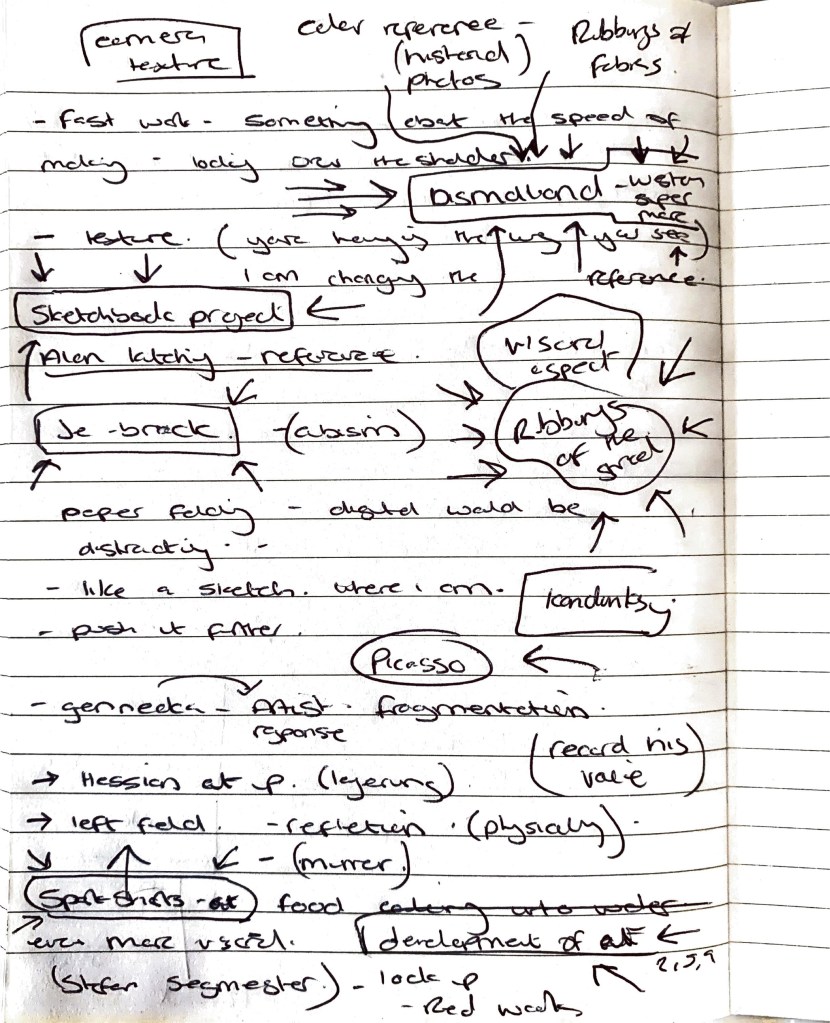 camera
texture
Color reference -
(historical
photos
Rubbings of
fabrics.
- Fast work - Something about the speed of
making - looking over the shoulder.
Dismaland - Weston
super
mare
- texture. (you're the way you see)
I am changing the
reference.
Sketchbook project
Alan Kitching - reference.
viseral
aspect
Je - brack. - (cubism)
Rubbings
of the
paper folding - digital would be
distracting. -
- like a sketch. where i am.
- push it further.
Kandinksy.
Picasso
- gernneeka - Artist. fragmentation.
response
(record his
voice)
→ Hessian at p. (layering).
→ left field. - refletion. (physically).
- (mirror.)
food
even more viseral. development of
2, 5, 9
(Stefan Segmester.) - look up
- Red works